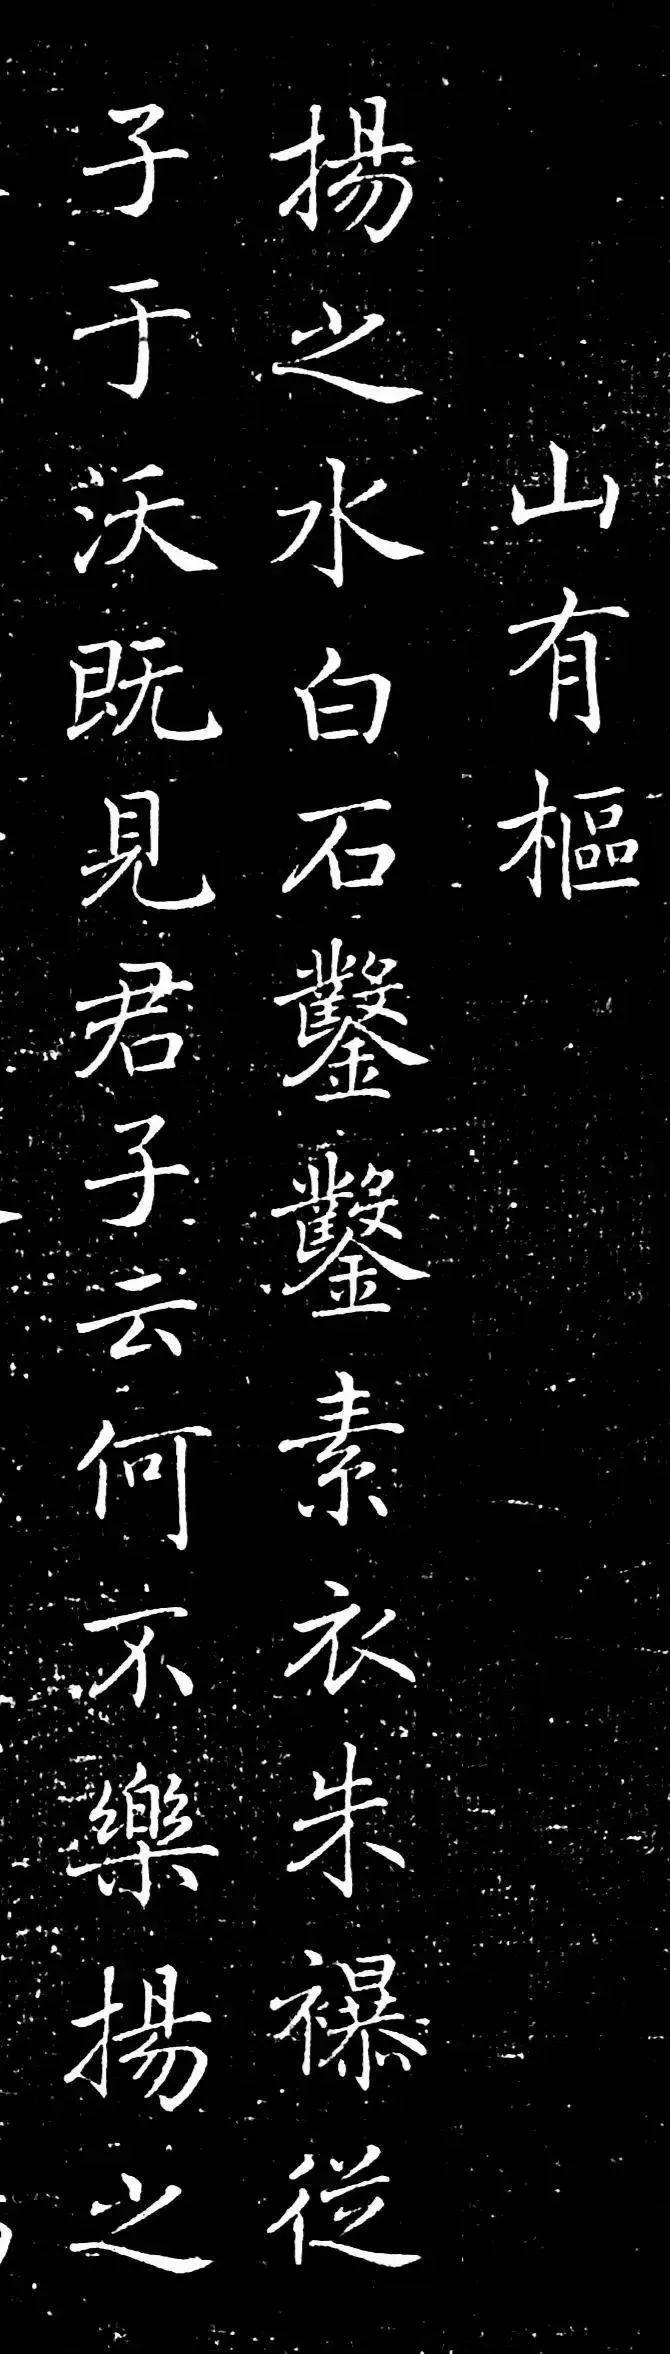 山有樞
揚之水白石鑿鑿素衣朱襮從
子于沃既見君子云何不樂揚之